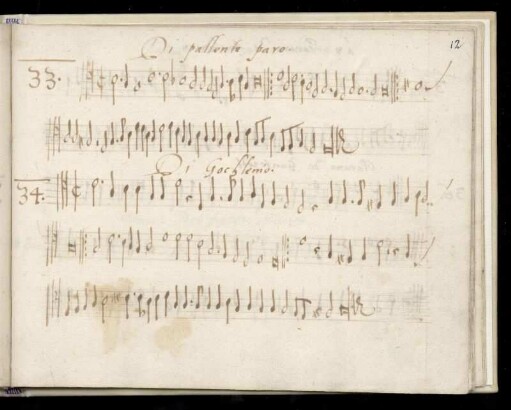 12
Di pallento paro
33.
Di Gocklemo.
34.